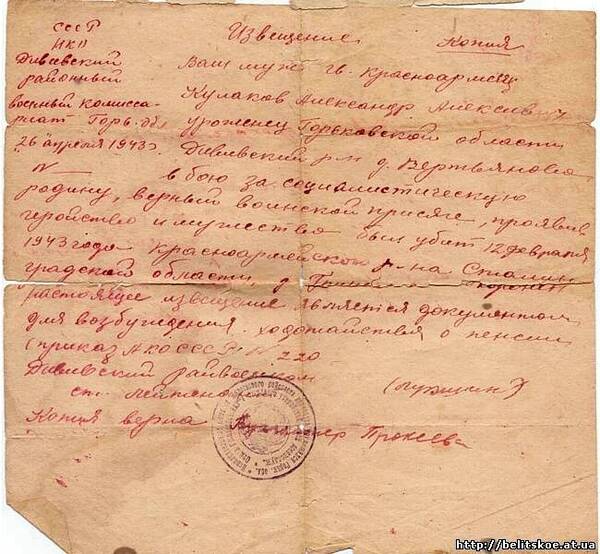 СССР
НКО
Дивеевский
районный
военный комисса-
риат Горь. обл.
26 апреля 1943г
N —
Извещение Копия
Ваш муж гв. красноармеец
Кулаков Александр Алексеевич
уроженец Горьковской области
Дивеевский р-н д. Вертьяново
в бою за социалистическую
родину, верный воинской присяге, проявив
геройство и мужество был убит 12 февраля
1943 года красноармейской р-на Сталин
градской области, д.
настоящее извещение является документом
для возбуждения ходотайства о пенсии
(приказ НКО СССР N 220
Дивеевский райвоенком
ст. лейтена
Копия верна
http://belitskoe.at.ua